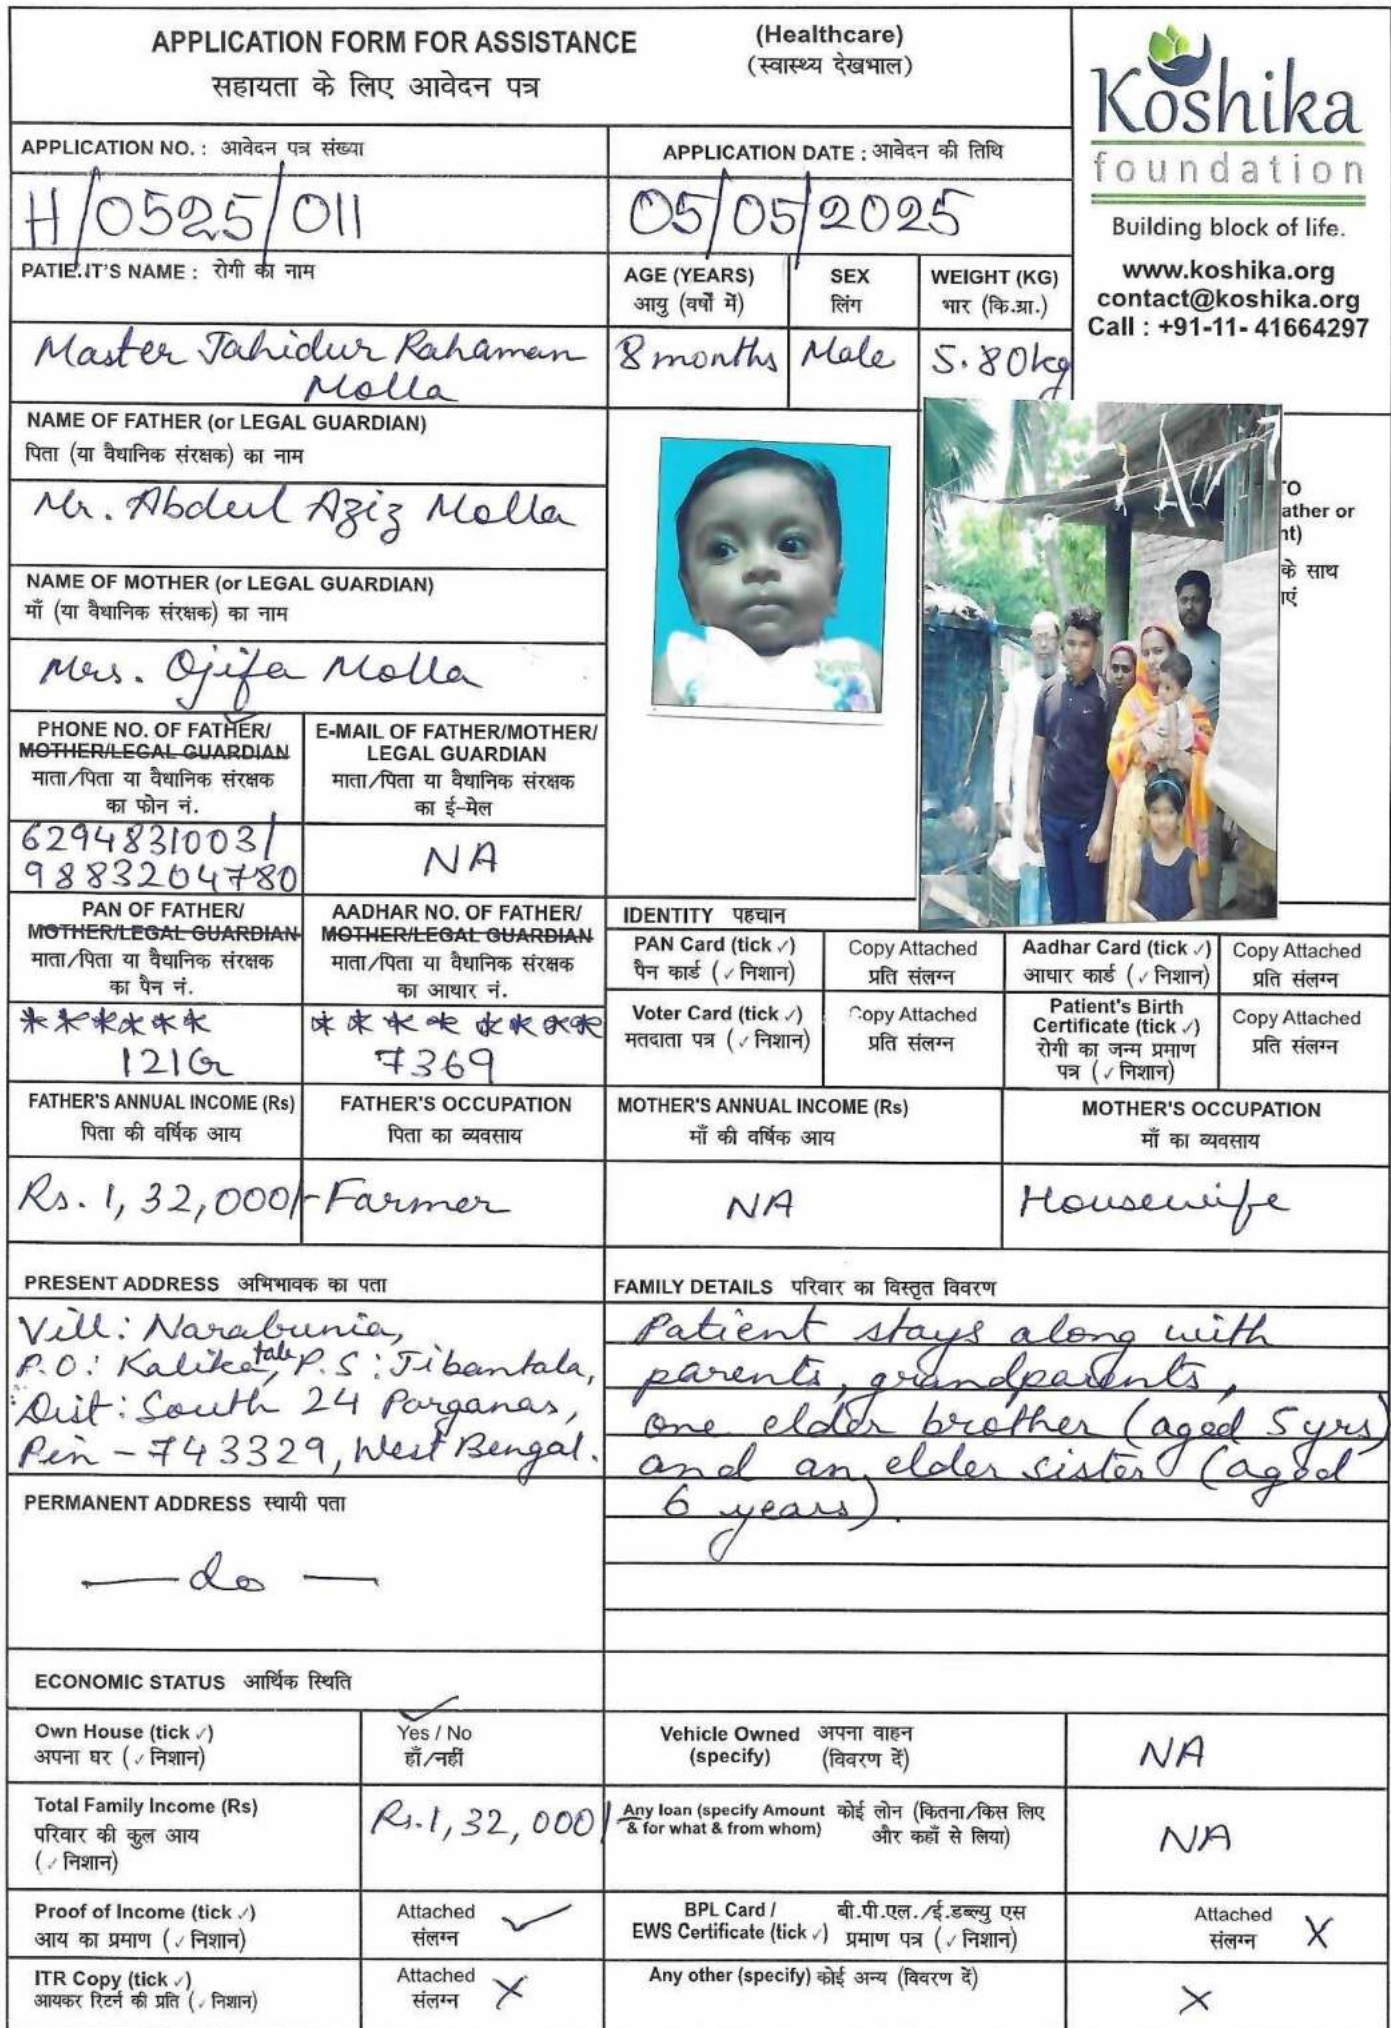 APPLICATION FORM FOR ASSISTANCE
सहायता के लिए आवेदन पत्र
(Healthcare)
(स्वास्थ्य देखभाल)
Koshika
foundation
Building block of life.
www.koshika.org
contact@koshika.org
Call : +91-11- 41664297
APPLICATION NO. : आवेदन पत्र संख्या
APPLICATION DATE : आवेदन की तिथि
H/0525/011
05/05/2025
PATIENT'S NAME : रोगी का नाम
AGE (YEARS)
आयु (वर्षों में)
SEX
लिंग
WEIGHT (KG)
भार (कि.ग्रा.)
Master Jahidur Rahaman
Molla
8 months
Male
5.80kg
NAME OF FATHER (or LEGAL GUARDIAN)
पिता (या वैधानिक संरक्षक) का नाम
Mr. Abdul Aziz Molla
NAME OF MOTHER (or LEGAL GUARDIAN)
माँ (या वैधानिक संरक्षक) का नाम
Mrs. Ojifa Molla
TO
ather or
nt)
के साथ
एं
PHONE NO. OF FATHER/
MOTHER/LEGAL GUARDIAN
माता/पिता या वैधानिक संरक्षक
का फोन नं.
E-MAIL OF FATHER/MOTHER/
LEGAL GUARDIAN
माता/पिता या वैधानिक संरक्षक
का ई-मेल
6294831003/
9883204780
NA
PAN OF FATHER/
MOTHER/LEGAL GUARDIAN
माता/पिता या वैधानिक संरक्षक
का पैन नं.
AADHAR NO. OF FATHER/
MOTHER/LEGAL GUARDIAN
माता/पिता या वैधानिक संरक्षक
का आधार नं.
******
121G
**** ****
7369
IDENTITY पहचान
PAN Card (tick ✓)
पैन कार्ड (✓ निशान)
Copy Attached
प्रति संलग्न
Aadhar Card (tick ✓)
आधार कार्ड (✓ निशान)
Copy Attached
प्रति संलग्न
Voter Card (tick ✓)
मतदाता पत्र (✓ निशान)
Copy Attached
प्रति संलग्न
Patient's Birth
Certificate (tick ✓)
रोगी का जन्म प्रमाण
पत्र (✓ निशान)
Copy Attached
प्रति संलग्न
FATHER'S ANNUAL INCOME (Rs)
पिता की वर्षिक आय
FATHER'S OCCUPATION
पिता का व्यवसाय
MOTHER'S ANNUAL INCOME (Rs)
माँ की वर्षिक आय
MOTHER'S OCCUPATION
माँ का व्यवसाय
Rs. 1,32,000/-
Farmer
NA
Housewife
PRESENT ADDRESS अभिभावक का पता
Vill: Narabunia,
P.O: Kalikatala, P.S: Jibantala,
Dist: South 24 Parganas,
Pin - 743329, West Bengal.
FAMILY DETAILS परिवार का विस्तृत विवरण
Patient stays along with
parents, grandparents,
one elder brother (aged 5 yrs)
and an elder sister (aged
6 years).
PERMANENT ADDRESS स्थायी पता
— do —
ECONOMIC STATUS आर्थिक स्थिति
Own House (tick ✓)
अपना घर (✓ निशान)
✓
Yes / No
हाँ/नहीं
Vehicle Owned अपना वाहन
(specify) (विवरण दें)
NA
Total Family Income (Rs)
परिवार की कुल आय
(✓ निशान)
Rs. 1,32,000/-
Any loan (specify Amount कोई लोन (कितना/किस लिए
& for what & from whom) और कहाँ से लिया)
NA
Proof of Income (tick ✓)
आय का प्रमाण (✓ निशान)
Attached ✓
संलग्न
BPL Card / बी.पी.एल./ई.डब्ल्यु एस
EWS Certificate (tick ✓) प्रमाण पत्र (✓ निशान)
Attached
संलग्न X
ITR Copy (tick ✓)
आयकर रिटर्न की प्रति (✓ निशान)
Attached X
संलग्न
Any other (specify) कोई अन्य (विवरण दें)
X